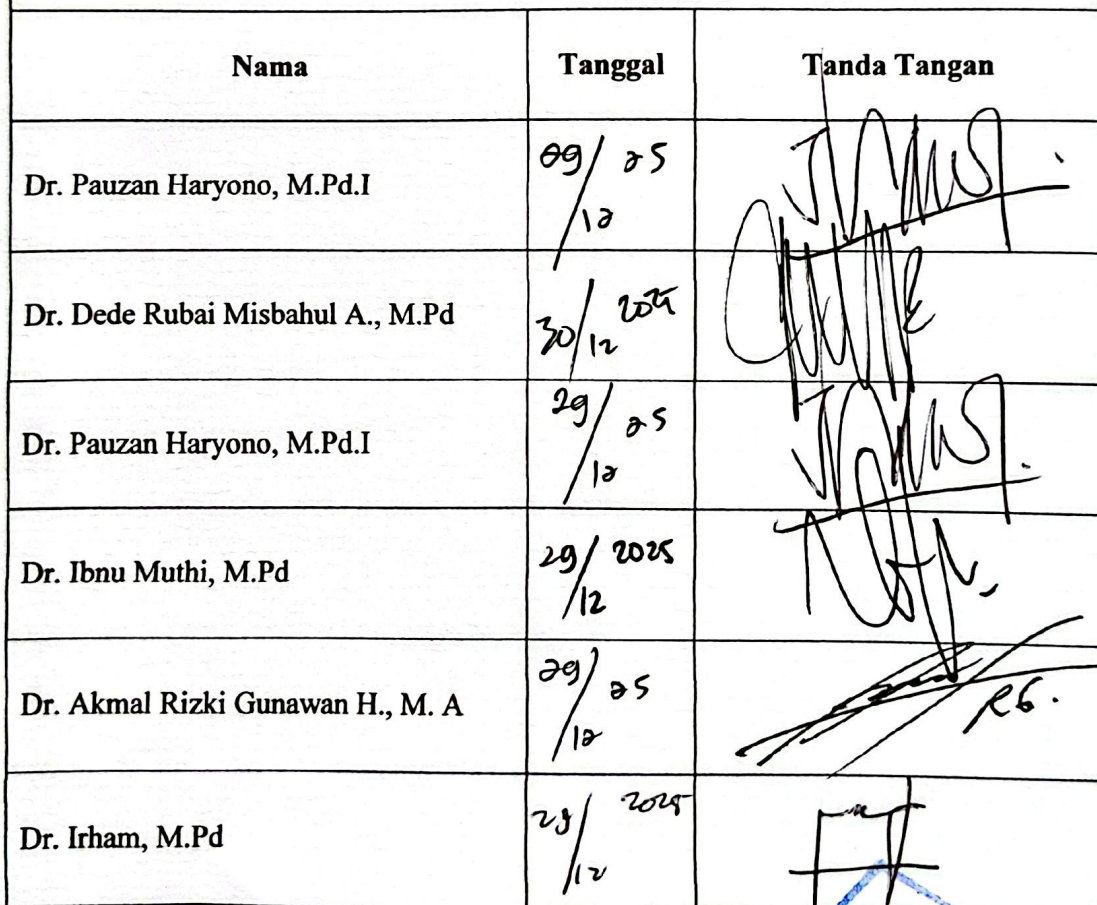 Nama Tanggal Tanda Tangan
Dr. Pauzan Haryono, M.Pd.I 29/12 25
Dr. Dede Rubai Misbahul A., M.Pd 30/12 2025
Dr. Pauzan Haryono, M.Pd.I 29/12 25
Dr. Ibnu Muthi, M.Pd 29/12 2025
Dr. Akmal Rizki Gunawan H., M. A 29/12 25
Dr. Irham, M.Pd 29/12 2025